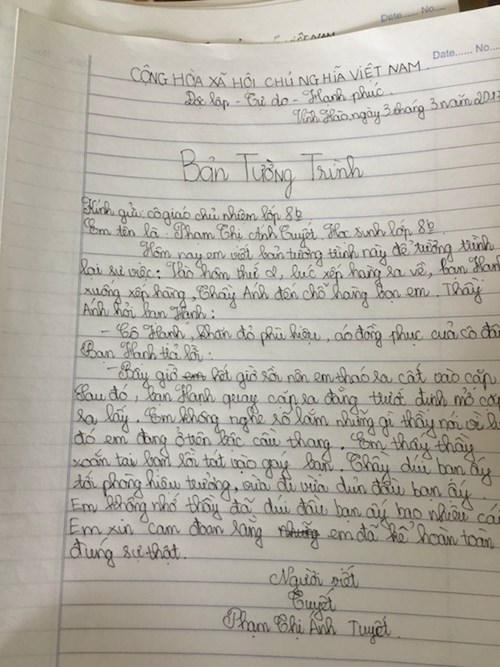 Date...... No...
Date...... No...
CỘNG HÒA XÃ HỘI CHỦ NGHĨA VIỆT NAM
Độc lập - Tự do - Hạnh phúc.
Vĩnh Hào, ngày 3 tháng 3 năm 201
Bản Tường Trình
Kính gửi: cô giáo chủ nhiệm lớp 8b
Em tên là: Phạm Thị Ánh Tuyết. Học sinh lớp 8b.
Hôm nay em viết bản tường trình này để tường trình
lại sự việc: Vào hôm thứ 2, lúc xếp hàng ra về, bạn Hạnh
xuống xếp hàng, Thầy Ánh đến chỗ hàng bọn em. Thầy
Ánh hỏi bạn Hạnh:
- Cô Hạnh, khăn đỏ phù hiệu, áo đồng phục của cô đâ
Bạn Hạnh trả lời:
- Bây giờ em hết giờ rồi nên em tháo ra cất vào cặp
Sau đó, bạn Hạnh quay cặp ra đằng trước định mở cặp
ra lấy. Em không nghe rõ lắm những gì thầy nói vì lú
đó em đang ở trên bậc cầu thang. Em thấy thầy
xoắn tai bạn rồi tát vào gáy bạn. Thầy dúi bạn ấy
tới phòng hiệu trưởng, vừa đi vừa dúi đầu bạn ấy.
Em không nhớ thầy đã dúi đầu bạn ấy bao nhiêu cái
Em xin cam đoan rằng những em đã kể hoàn toàn
đúng sự thật.
Người viết
Tuyết
Phạm Thị Ánh Tuyết.